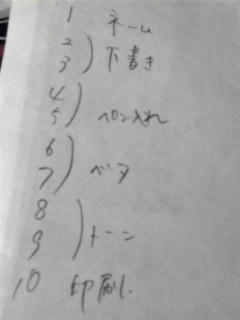 1 ネーム
2
3 ) 下書き
4
5 ) ペン入れ
6
7 ) ベタ
8
9 ) トーン
10 印刷